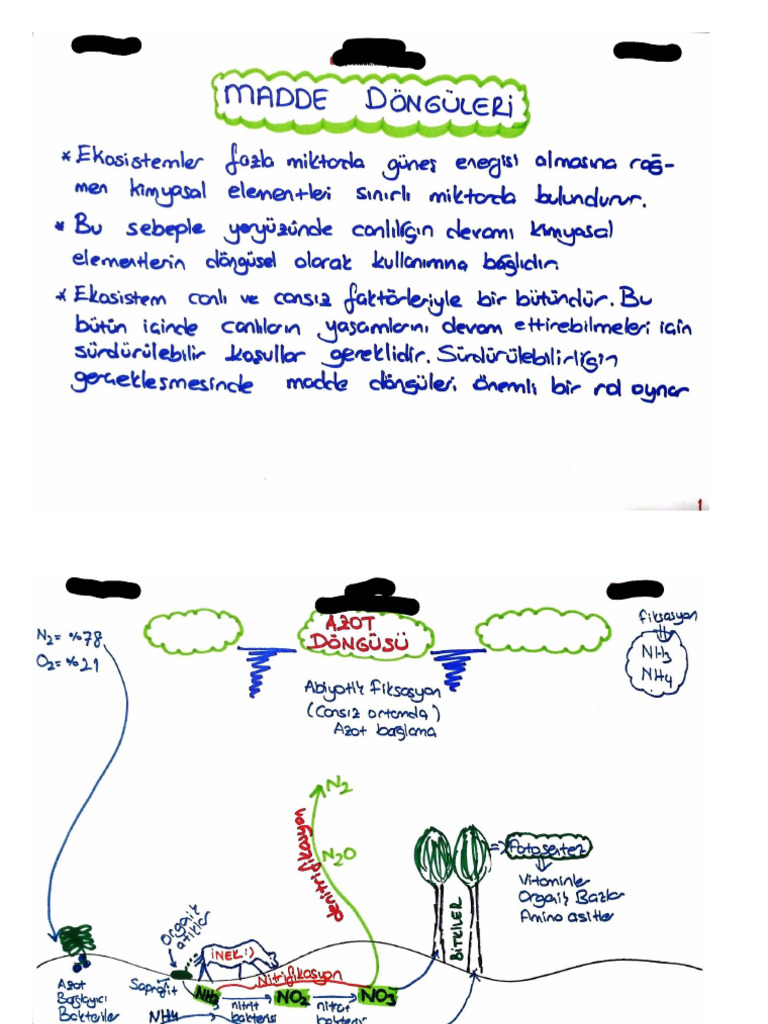 MADDE DÖNGÜLERİ
* Ekosistemler fazla miktarda güneş enerjisi almasına rağ-
men kimyasal elementleri sınırlı miktarda bulundurur.
* Bu sebeple yeryüzünde canlılığın devamı kimyasal
elementlerin döngüsel olarak kullanımına bağlıdır.
* Ekosistem canlı ve cansız faktörleriyle bir bütündür. Bu
bütün içinde canlıların yaşamlarını devam ettirebilmeleri için
sürdürülebilir koşullar gereklidir. Sürdürülebilirliğin
gerçekleşmesinde madde döngüleri önemli bir rol oynar
1
N2 = %78
O2 = %21
AZOT
DÖNGÜSÜ
Fiksasyon
NH3
NH4
Abiyotik Fiksasyon
(Cansız ortamda)
Azot bağlama
N2
N2O
denitrifikasyon
=> Fotosentez
Vitaminler
Organik Bazlar
Amino asitler
BİTKİLER
Organik
atıklar
İNEK :)
Azot
Bağlayıcı
Bakteriler
Saprofit
Nitrifikasyon
NH3
NO2
NO3
nitrit
bakterisi
nitrat
bakterisi
NH4